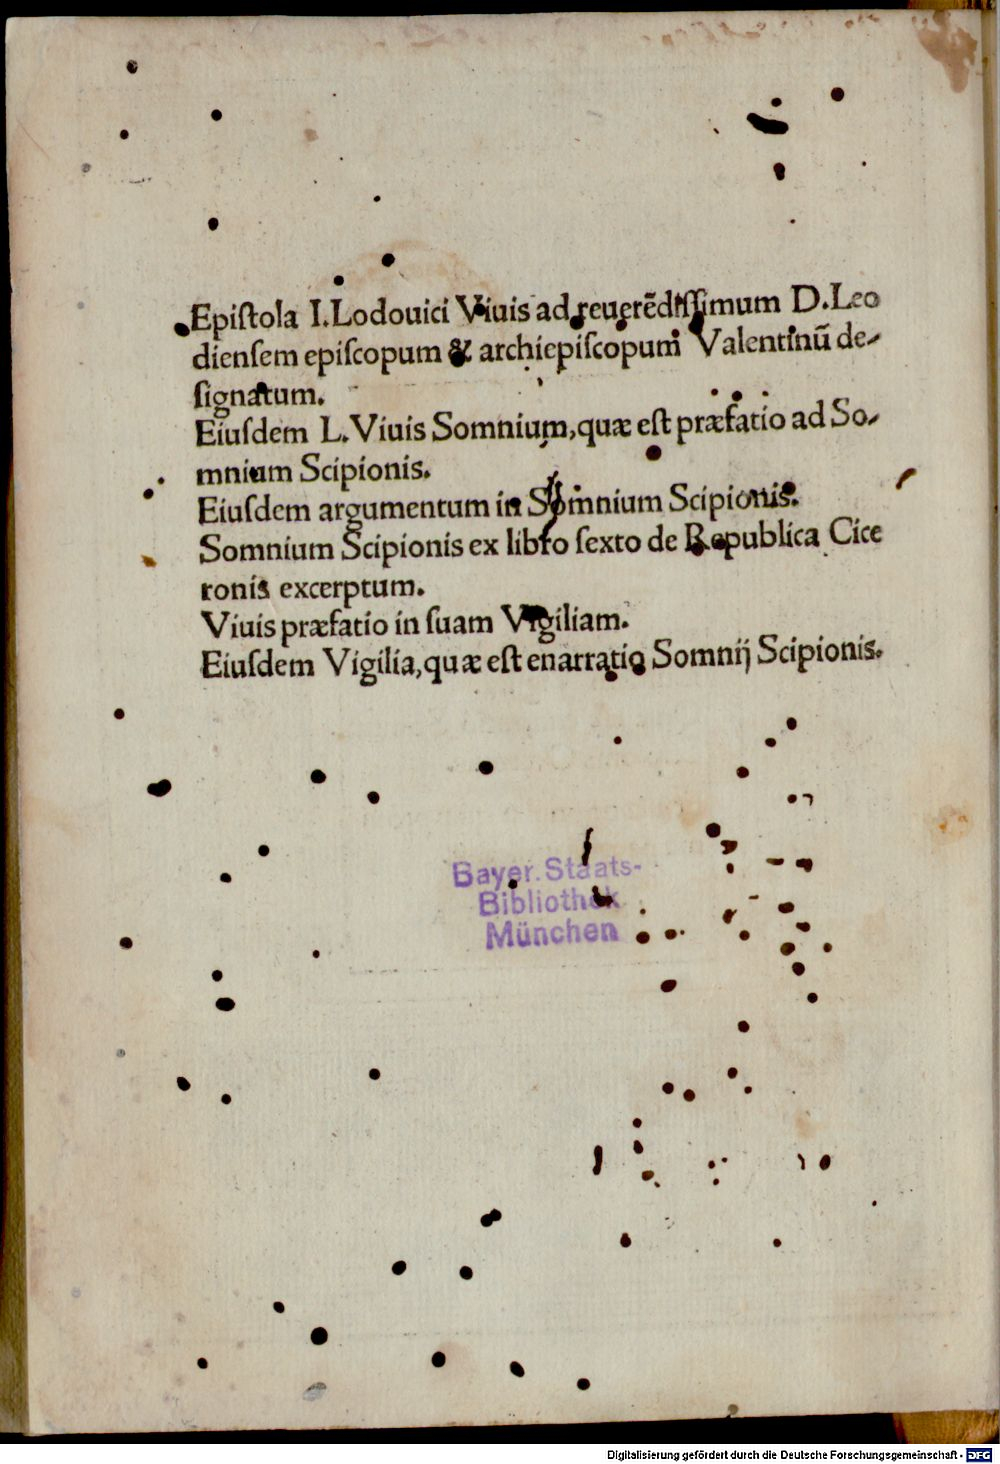 Epiſtola I.Lodouici Viuis ad reuerẽdiſſimum D.Leo
dienſem epiſcopum & archiepiſcopum Valentinũ de-
ſignatum.
Eiuſdem L.Viuis Somnium,quæ eſt præfatio ad So-
mnium Scipionis.
Eiuſdem argumentum in Somnium Scipionis.
Somnium Scipionis ex libro ſexto de Republica Cice
ronis excerptum.
Viuis præfatio in ſuam Vigiliam.
Eiuſdem Vigilia,quæ eſt enarratio Somnij Scipionis.
Bayer. Staats-
Bibliothek
München
Digitalisierung gefördert durch die Deutsche Forschungsgemeinschaft - DFG